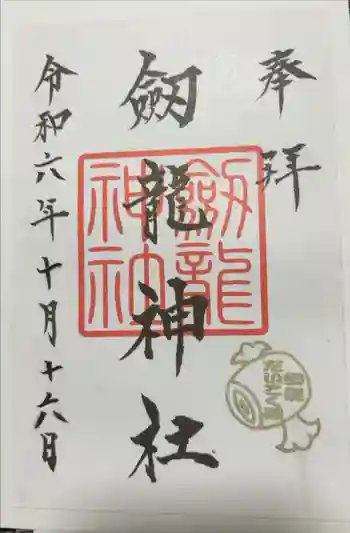 奉拝
劔龍神社
令和六年十月十六日
劔龍
神社